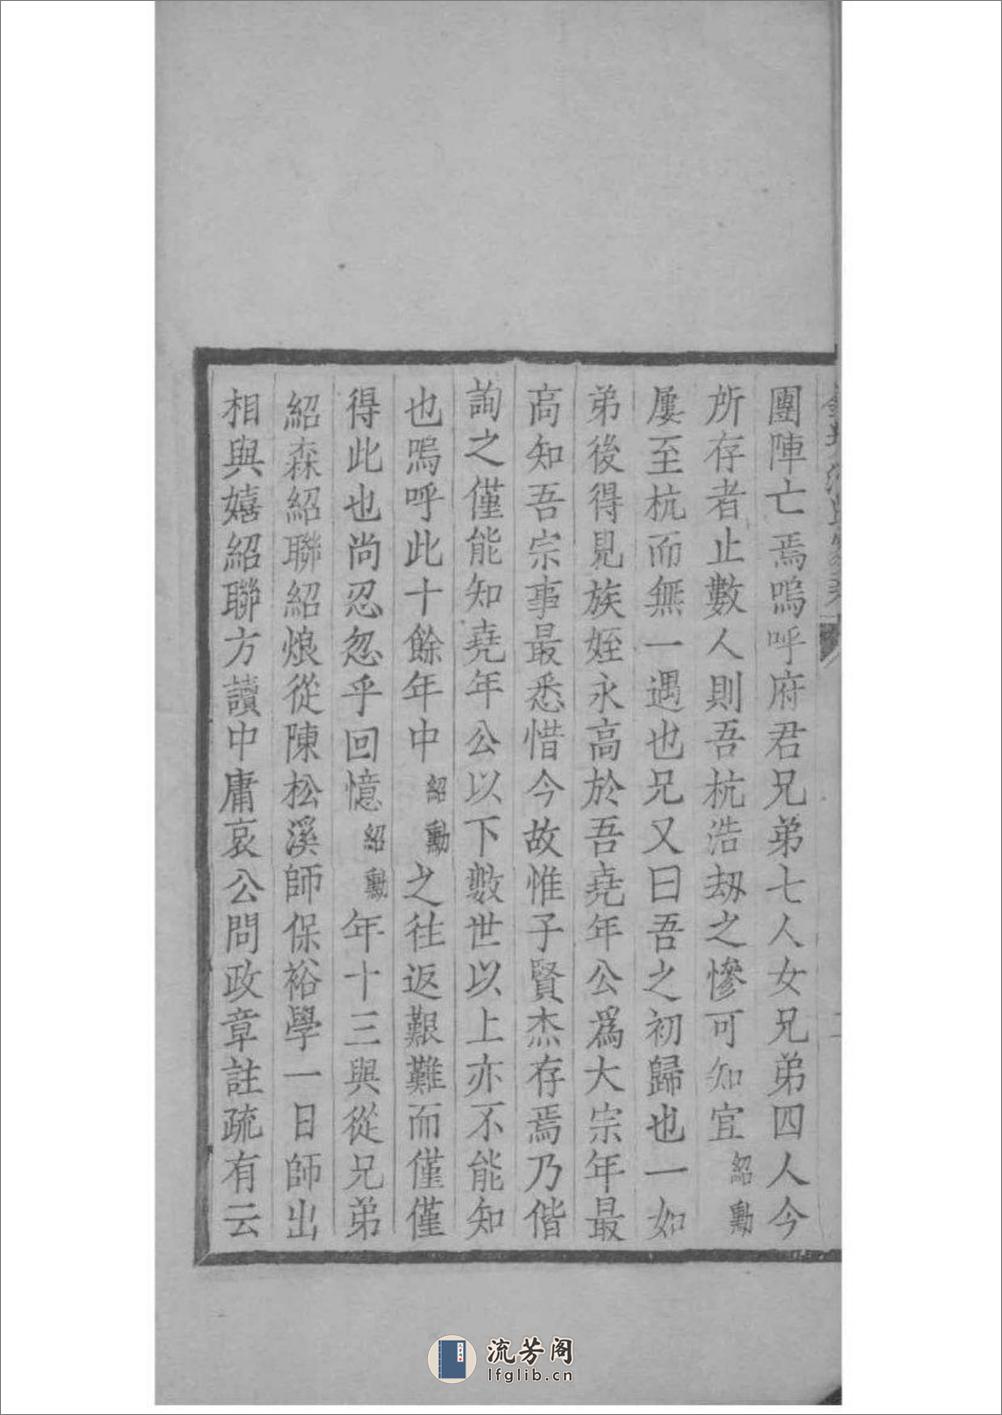 團陣亡焉嗚呼府君兄弟七人女兄弟四人今
所存者止數人則吾杭浩劫之慘可知宜紹勳
屢至杭而無一遇也兄又曰吾之初歸也一如
弟後得見族姪永高於吾堯年公爲大宗年最
高知吾宗事最悉惜今故惟子賢杰存焉乃偕
詢之僅能知堯年公以下數世以上亦不能知
也嗚呼此十餘年中紹勳之往返艱難而僅僅
得此也尚忍忽乎回憶紹勳年十三與從兄弟
紹森紹聯紹烺從陳松溪師保裕學一日師出
相與嬉紹聯方讀中庸哀公問政章註疏有云
流芳阁
lfglib.cn